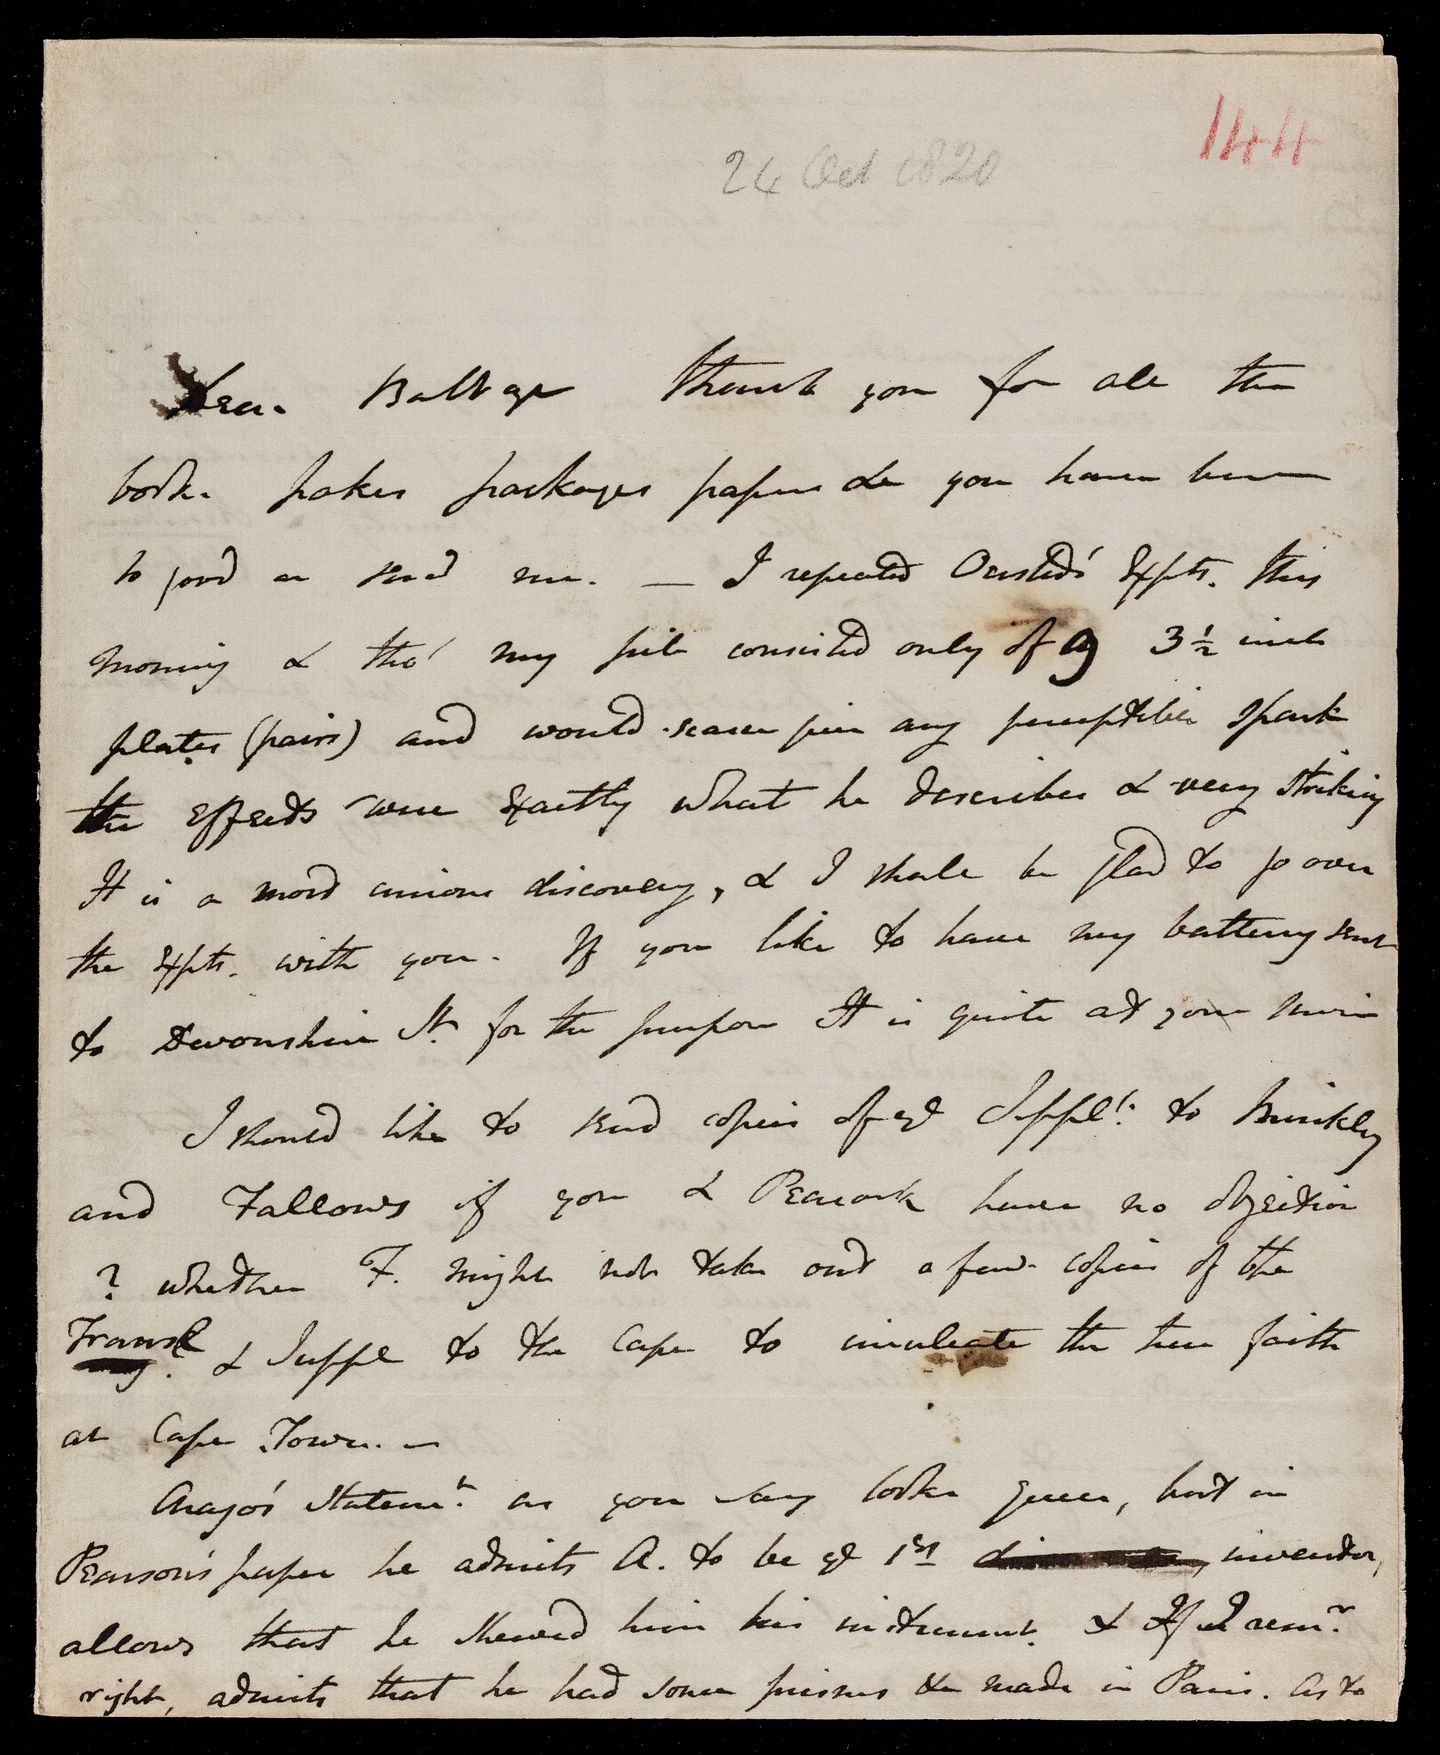 144
24 Oct 1820
Dear Babbage Thank you for all the
books pokes packages papers &c you have been
so good as send me. — I repeated Oersted's Expts. this
morning & tho' my pile consisted only of 9 3½ inch
plates (pairs) and would scarce give any perceptible spark
the effects were exactly what he describes & very striking
It is a most curious discovery, & I shall be glad to go over
the Expts. with you. If you like to have my battery sent
to Devonshire St. for the purpose It is quite at your service
I should like to send copies of ye Supplt. to Brinkley
and Fallows if you & Peacock have no objection
? whether F. might not take out a few copies of the
Transl & Suppl to the Cape to inculcate the true faith
at Cape Town. —
Arago's Statemt. as you say looks queer, but in
Pearson's paper he admits A. to be ye 1st inventor,
allows that he shewed him his instrument. & If I remr.
right, admits that he had some prisms &c made in Paris. As to